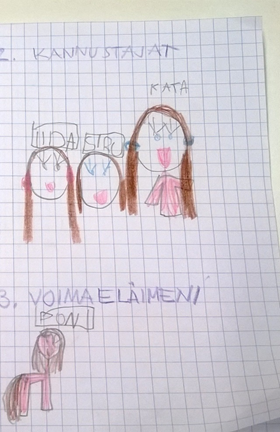 2. KANNUSTAJAT
KATA
IIDA ESTRU
3. VOIMAELÄIMENI
PONI